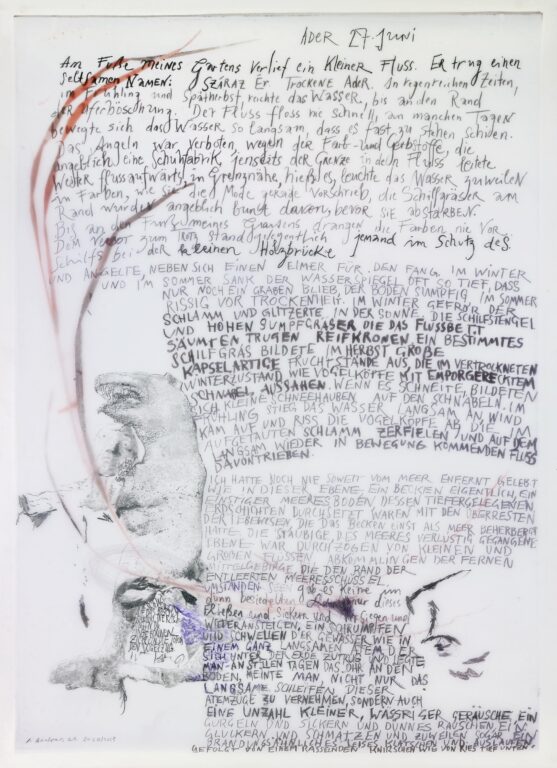 ADER 27. JUNI
Am Fuße meines Gartens verlief ein kleiner Fluss. Er trug einen
seltsamen Namen: SZÁRAZ ÉR TROCKENE ADER. In regenreichen Zeiten,
im Frühling und Spätherbst, reichte das Wasser, bis an den Rand
der Uferböschung. Der Fluss floss nie schnell, an manchen Tagen
bewegte sich das Wasser so langsam, dass es fast zu stehen schien.
Das Angeln war verboten, wegen der Farb- und Gerbstoffe, die
angeblich eine Schuhfabrik jenseits der Grenze in den Fluss leitete
weiter flussaufwärts, in Grenznähe, hieß es, leuchte das Wasser zuweilen
in Farben, wie sie die Mode gerade vorschrieb, die Schilfgräser am
Rand würden angeblich bunt davon, bevor sie abstarben.
Bis an den Fuß meines Gartens drangen die Farben nie vor.
Dem Verbot zum Trotz stand gelegentlich jemand im Schutz des
Schilfs bei der kleinen Holzbrücke
UND ANGELTE, NEBEN SICH EINEN EIMER FÜR DEN FANG. IM WINTER
UND IM SOMMER SANK DER WASSERSPIEGEL OFT SO TIEF, DASS
NUR NOCH EIN GRABEN BLIEB, DER BODEN SUMPFIG IM SOMMER
RISSIG VOR TROCKENHEIT. IM WINTER GEFROR DER
SCHLAMM UND GLITZERTE IN DER SONNE. DIE SCHILFSTENGEL
UND HOHEN SUMPFGRÄSER DIE DAS FLUSSBETT
SÄUMTEN TRUGEN REIFKRONEN. EIN BESTIMMTES
SCHILFGRAS BILDETE IM HERBST GROßE
KAPSELARTIGE FRUCHTSTÄNDE AUS, DIE IM VERTROCKNETEN
WINTERZUSTAND WIE VOGELKÖPFE MIT EMPORGERECKTEM
SCHNABEL AUSSAHEN. WENN ES SCHNEITE, BILDETEN
SICH KLEINE SCHNEEHAUBEN AUF DEN SCHNÄBELN. IM
FRÜHLING STIEG DAS WASSER LANGSAM AN, WIND
KAM AUF UND RISS DIE VOGELKÖPFE AB, DIE IM
AUFGETAUTEN SCHLAMM ZERFIELEN UND AUF DEM
LANGSAM WIEDER IN BEWEGUNG KOMMENDEN FLUSS
DAVONTRIEBEN.
ICH HATTE NOCH NIE SOWEIT VOM MEER ENFERNT GELEBT
WIE IN DIESER EBENE. EIN BECKEN EIGENTLICH, EIN
EINSTIGER MEERESBODEN, DESSEN TIEFERGELEGENEN
ERDSCHICHTEN DURCHSETZT WAREN MIT DEN ÜBERRESTEN
DER LEBEWESEN DIE DAS BECKEN EINST ALS MEER BEHERBERGT
HATTE. DIE STAUBIGE, DES MEERES VERLUSTIG GEGANGENE
EBENE WAR DURCHZOGEN VON KLEINEN UND
GROßEN FLÜSSEN, ABKÖMMLINGEN DER FERNEN
MITTELGEBIRGE DIE DEN RAND DER
ENTLEERTEN MEERESSCHÜSSEL
UMSTANDEN. gab es keine im
dann dieses
Fließen und Sickern und
WIEDERANSTEIGEN, EIN SCHRUMPFEN
UND SCHWELLEN DER GEWÄSSER WIE IN
EINEM GANZ LANGSAMEN ATEM DER
SICH UNTEN DER ERDE ZUTRUG UND LEGTE
MAN AN STILLEN TAGEN DAS OHR AN DEN
BODEN, MEINTE MAN, NICHT NUR DAS
LANGSAME SCHLEIFEN DIESER
ATEMZÜGE ZU VERNEHMEN, SONDERN AUCH
EINE UNZAHL KLEINER, WÄSSRIGER GERÄUSCHE EIN
GURGELN UND SICKERN UND DÜNNES RAUSCHEN EIN
GLUCKERN UND SCHMATZEN UND ZUWEILEN SOGAR EIN
BRANDUNGSÄHNLICHES LEISES KLATSCHEN UND AUSLAUFEN
GEFOLGT VON EINEM RASSELNDEN KNIRSCHEN WIE VON KIES TIEF UNTEN.